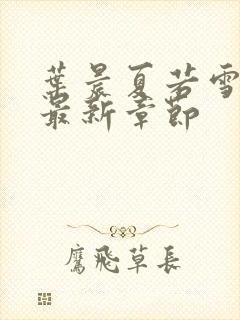 葉晨夏若雪
最新章節
鷹飛草長